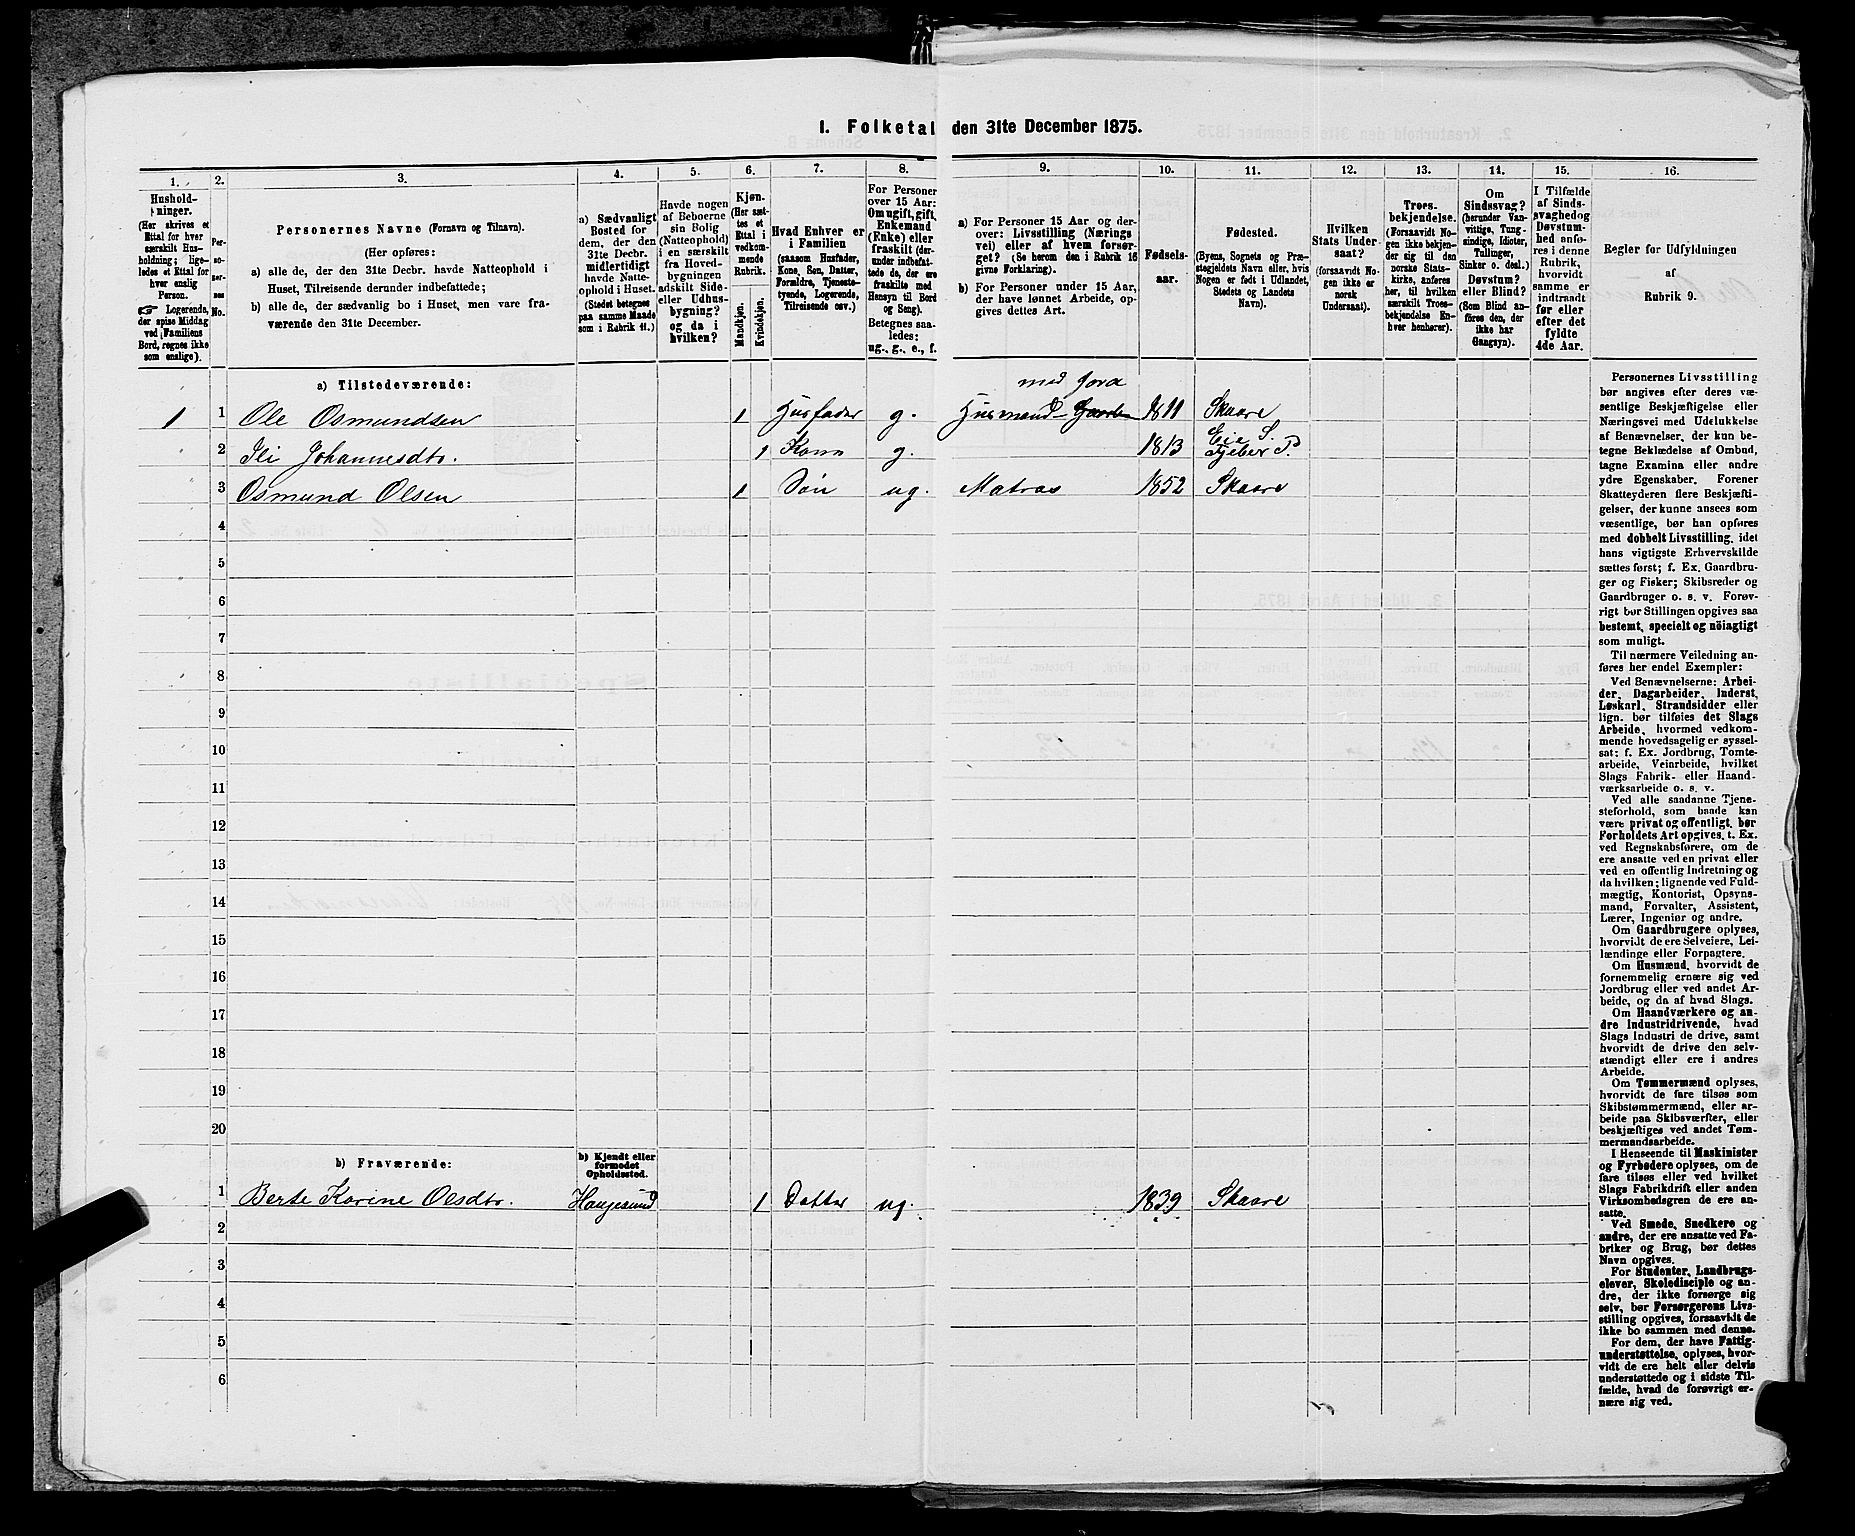 I. Folketal den 31te December 1875.
1. 2. 3. 4. 5. 6. 7. 8. 9. 10. 11. 12. 13. 14. 15. 16.
Hushold-
ninger.
(Her skrives et
Ettal for hver
særskilt Hus-
holdning; lige-
ledes et Ettal for
hver enslig
Person.
☞ Logerende,
der spise Middag
ved Familiens
Bord, regnes ikke
som enslige).
Per-
so-
ner-
nes
No.
Personernes Navne (Fornavn og Tilnavn).
(Her opføres:
a) alle de, der den 31te Decbr. havde Natteophold i
Huset, Tilreisende derunder indbefattede;
b) alle de, der sædvanlig bo i Huset, men vare fra-
værende den 31te December.
a) Sædvanligt
Bosted for
dem, der den
31te Decbr.
midlertidigt
havde Natte-
ophold i Huset.
(Stedet betegnes
paa samme Maade
som i Rubrik 11.)
Havde nogen
af Beboerne
sin Bolig
(Natteophold)
i en særskilt
fra Hoved-
bygningen
adskilt Side-
eller Udhus-
bygning?
og da i
hvilken?
Kjøn.
(Her sæt-
tes et
Ettal i
vedkom-
mende
Rubrik.
Mandkjøn.
Kvindekjøn.
Hvad Enhver er
i Familien
(saasom Husfader,
Kone, Søn, Datter,
Forældre, Tjeneste-
tyende, Logerende,
Tilreisende osv.)
For Personer
over 15 Aar:
Om ugift, gift,
Enkemand
(Enke) eller
fraskilt (der-
under indbefat-
tede de, der ere
fraskilte med
Hensyn til Bord
og Seng).
Betegnes saa-
ledes:
ug., g., e., f.
a) For Personer 15 Aar og der-
over: Livsstilling (Nærings
vei) eller af hvem forsør-
get? (Se herom den i Rubrik 16
givne Forklaring).
b) For Personer under 15 Aar,
der have lønnet Arbeide, op-
gives dettes Art.
Fødsels-
aar.
Fødested.
(Byens, Sognets og Præ-
stegjeldets Navn eller, hvis
Nogen er født i Udlandet,
Stedets og Landets
Navn).
Hvilken
Stats Under-
saat?
(forsaavidt No-
gen ikke er
norsk
Undersaat).
Troes-
bekjendelse.
(Forsaavidt No-
gen ikke bekjen-
der sig til den
norske Stats-
kirke, anføres
her, til hvilken
særskilt Troes-
bekjendelse En-
hver henhører).
Om
Sindssvag?
(herunder Van-
vittige, Tung-
sindige, Idioter,
Tullinger,
Sinker o. desl.)
Døvstum?
eller Blind?
(Som Blind an-
føres den, der
ikke har
Gangsyn).
I Tilfælde
af Sinds-
svaghed og
Døvstum-
hed anfø-
res i denne
Rubrik,
hvorvidt
samme er
indtraadt
før eller
efter det
fyldte
4de Aar.
Regler for Udfyldningen
af
Rubrik 9.
a) Tilstedeværende:
med Jord
1 1 Ole Osmundsen 1 Husfader g. Husmand Gaardbr 1811 Skaare
Eie S.
2 Ili Johannesdtr. 1 Kone g. 1813 Tjeber P.
3 Osmund Olsen 1 Søn ug. Matros 1852 Skaare
4
5
6
7
8
9
10
11
12
13
14
15
16
17
18
19
20
b) Fraværende:
b) Kjendt eller
formodet
Opholdssted.
1 Berte Karine Olsdtr. Haugesund 1 Datter ug. 1839 Skaare
2
3
4
5
6
Personernes Livsstilling
bør angives efter deres væ-
sentlige Beskjæftigelse eller
Næringsvei med Udelukkelse
af Benævnelser, der kun be-
tegne Beklædelse af Ombud,
tagne Examina eller andre
ydre Egenskaber. Forener
Skatteyderen flere Beskjæfti-
gelser, der kunne ansees som
væsentlige, bør han opføres
med dobbelt Livsstilling, idet
hans vigtigste Erhvervskilde
sættes først; f. Ex. Gaardbru-
ger og Fisker; Skibsreder og
Gaardbruger o. s. v. Forøv-
rigt bør Stillingen opgives saa
bestemt, specielt og nöiagtigt
som muligt.
Til nærmere Veiledning an-
føres her endel Exempler:
Ved Benævnelserne: Arbei-
der, Dagarbeider, Inderst,
Løskarl, Strandsidder eller
lign. bør tilføies det Slags
Arbeide, hvormed vedkom-
mende hovedsagelig er syssel-
sat; f. Ex. Jordbrug, Tomte-
arbeide, Veiarbeide, hvilket
Slags Fabrik- eller Haand-
værksarbeide o. s. v.
Ved alle saadanne Tjene-
steforhold, som baade kan
være privat og offentligt, bør
Forholdets Art opgives, t. Ex.
ved Regnskabsførere, om de
ere ansatte ved en privat eller
ved en offentlig Indretning og
da hvilken; lignende ved Fuld-
mægtig, Kontorist, Opsyns-
mand, Forvalter, Assistent,
Lærer, Ingeniør og andre.
Om Gaardbrugere oplyses,
hvorvidt de ere Selveiere, Lei-
lændinge eller Forpagtere.
Om Husmænd, hvorvidt de
fornemmelig ernære sig ved
Jordbrug eller ved andet Ar-
beide, og da af hvad Slags.
Om Haandværkere og an-
dre Industridrivende, hvad
Slags Industri de drive, samt
hvorvidt de drive den selv-
stændigt eller ere i andres
Arbeide.
Om Tømmermænd oplyses,
hvorvidt de fare tilsøs som
Skibstømmermænd, eller ar-
beide paa Skibsværfter, eller
beskjæftiges ved andet Tøm-
mermandsarbeide.
I Henseende til Maskinister
og Fyrbødere oplyses, om de
fare tilsøs eller ved hvilket
Slags Fabrikdrift eller anden
Virksomhedsgren de ere an-
satte.
Ved Smede, Snedkere og
andre, der ere ansatte ved Fa-
briker og Brug, bør dettes
Navn opgives.
For Studenter, Landbrugs-
elever, Skoledisciple og an-
dre, der ikke forsørge sig
selv, bør Forsørgerens Livs-
stilling opgives, forsaavidt de
ikke bo sammen med denne.
For dem, der have Fattig-
understøttelse, oplyses, hvor-
vidt de ere helt eller delvis
understøttede og i sidste Til-
fælde, hvad de forøvrigt er-
nære sig ved.